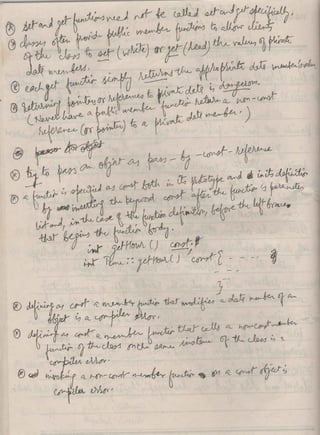 (A) set and get functions need not be called set and get specifically.
(B) classes often provide public member functions to allow clients
of the class to set (write) or get (read) the values of private
data members.
(C) each get function simply returns the appropriate data member's value
Returning pointers or references to private data is dangerous.
(Never have a public member function return a non-const
reference (or pointer) to a private data member.)
try to pass an object as pass-by-const-reference
a function is specified as const both in its prototype and in its definition
by inserting the keyword const after the function's parameter
list and, in the case of the function definition, before the left brace
that begins the function body.
int getHour () const;
int Time :: getHour() const { - - - -
- - -
}
(E) defining as const a member function that modifies a data member of an
object is a compiler error.
(F) defining as const a member function that calls a non-const member
function of the class on the same instance of the class is a
compiler error.
invoking a non-const member function on a const object is
compiler error.